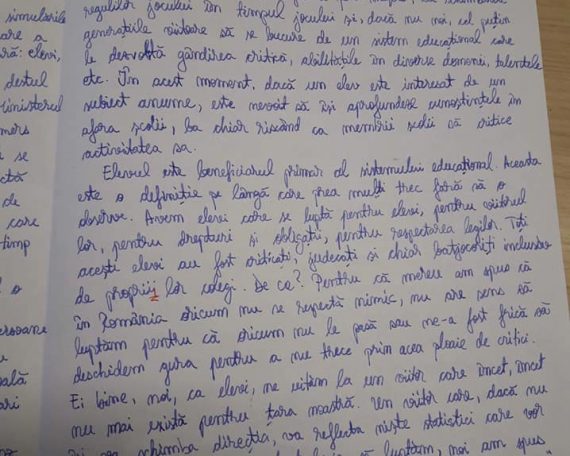 simulările
are a
ră: elevi,
destul
ministerul
mers
se
de
care
timp
o
ersoane
ală
ari
regulilor jocului în timpul jocului și, dacă nu noi, cel puțin
generațiile viitoare să se bucure de un sistem educațional care
le dezvoltă gândirea critică, abilitățile în diverse domenii, talentele
etc. În acest moment, dacă un elev este interesat de un
subiect anume, este nevoit să își aprofundeze cunoștințele în
afara școlii, ba chiar riscând ca membrii școlii să critice
activitatea sa.
Elevul este beneficiarul primar al sistemului educațional. Aceasta
este o definiție pe lângă care prea mulți trec fără să o
observe. Avem elevi care se luptă pentru elevi, pentru viitorul
lor, pentru drepturi și obligații, pentru respectarea legilor. Toți
acești elevi au fost criticați, judecați și chiar batjocoriți inclusiv
de propriii lor colegi. De ce? Pentru că mereu am spus că
în România oricum nu se respectă nimic, nu are sens să
luptăm pentru că oricum nu le pasă sau ne-a fost frică să
deschidem gura pentru a nu trece prin acea ploaie de critici.
Ei bine, noi, ca elevi, ne uităm la un viitor care încet, încet
nu mai există pentru țara noastră. Un viitor care, dacă nu
își va schimba direcția, va reflecta niște statistici care vor
luptăm, noi am spus